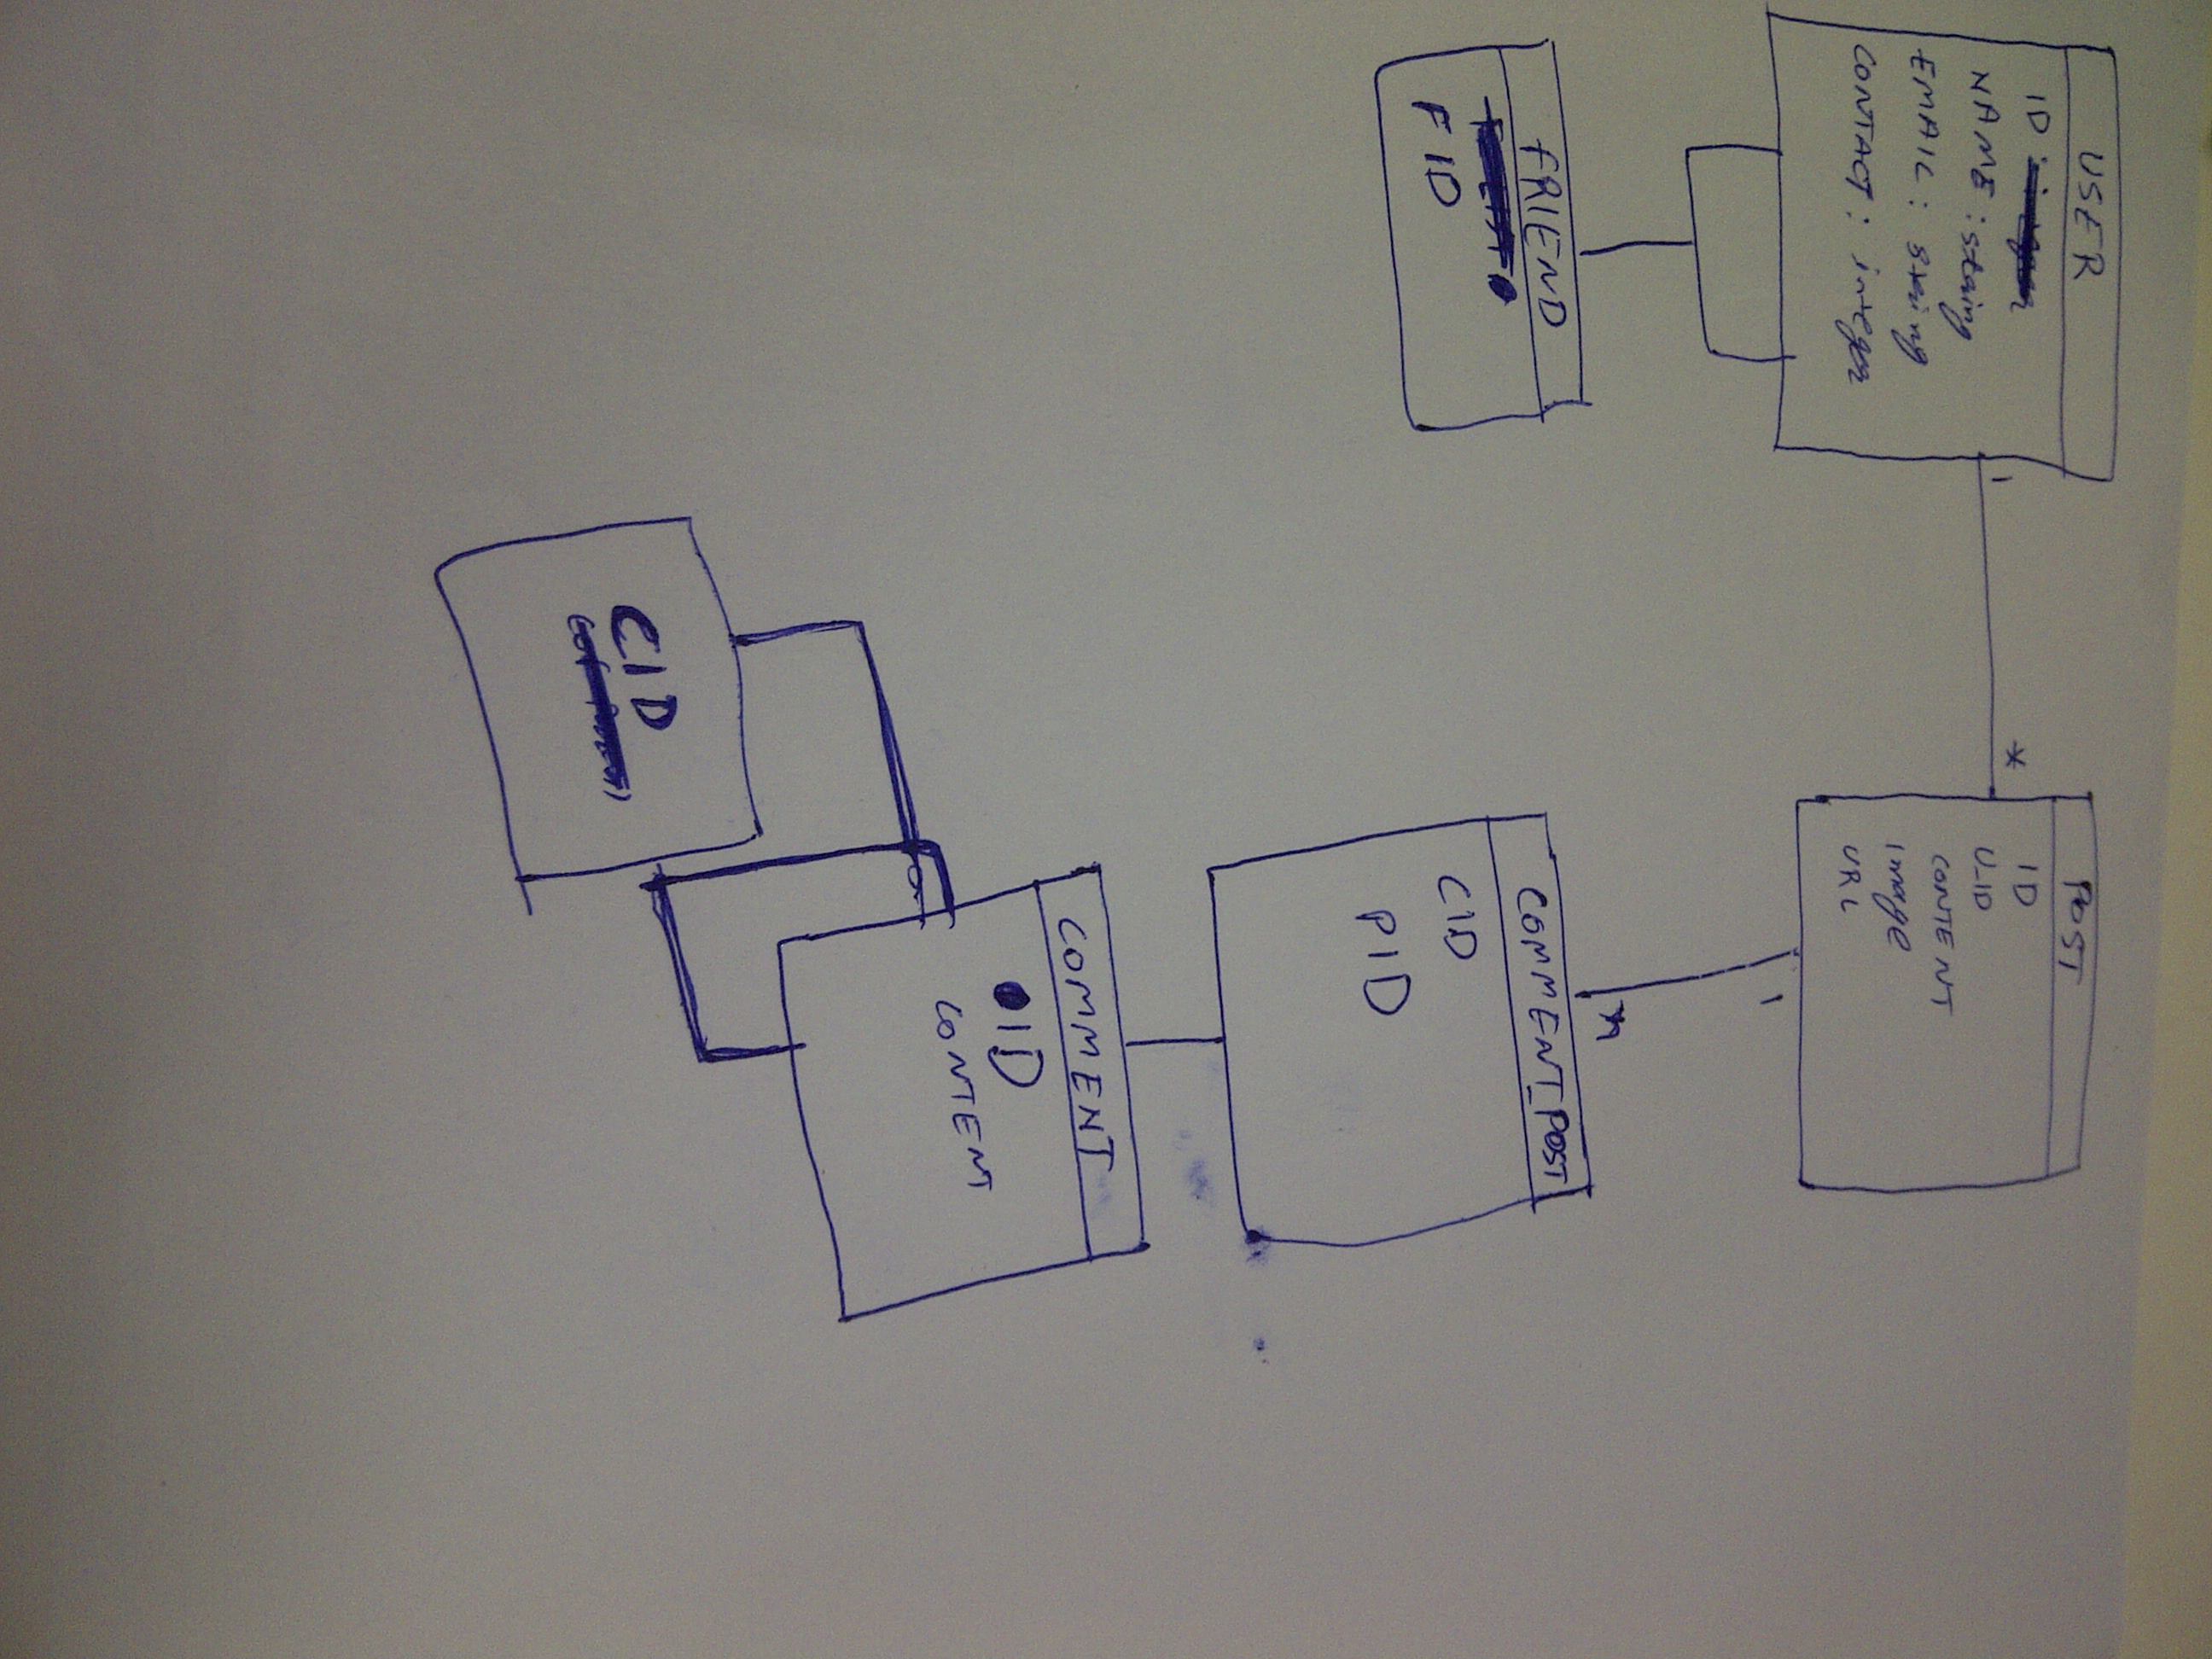 USER
ID
NAME : string
EMAIL : string
CONTACT : integer
1
*
POST
ID
U_ID
CONTENT
image
URL
1
FRIEND
FID
COMMENT_POST
CID
PID
COMMENT
ID
CONTENT
CID